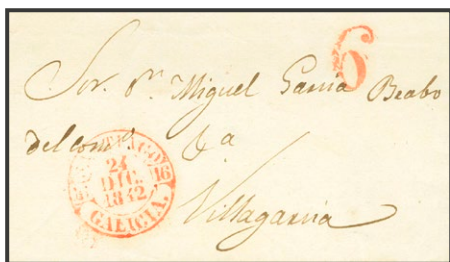 6
Sor. Dn. Miguel Garcia Beabo
del com.º &a
SANTIAGO 16
24
DIC.
1842
GALICIA.
Villagarcia